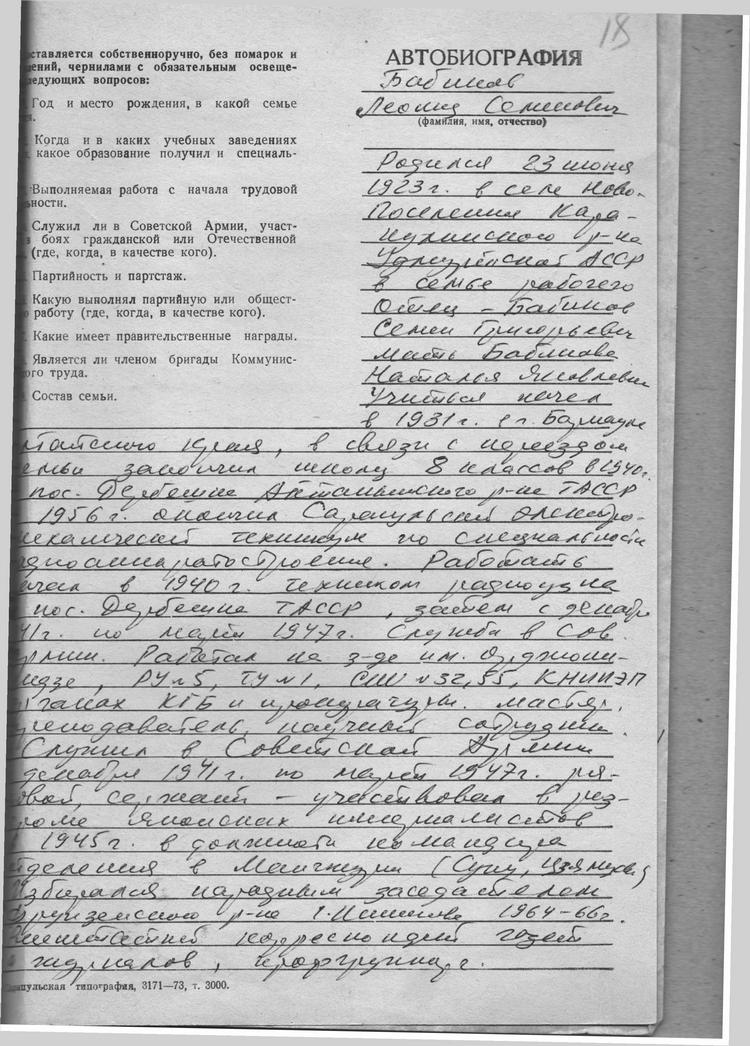 18
АВТОБИОГРАФИЯ
ставляется собственноручно, без помарок и
ений, чернилами с обязательным освеще-
ледующих вопросов:
Год и место рождения, в какой семье
я.
Когда и в каких учебных заведениях
какое образование получил и специаль-
Выполняемая работа с начала трудовой
ьности.
Служил ли в Советской Армии, участ-
в боях гражданской или Отечественной
(где, когда, в качестве кого).
Партийность и партстаж.
Какую выполнял партийную или общест-
работу (где, когда, в качестве кого).
Какие имеет правительственные награды.
Является ли членом бригады Коммунис-
ого труда.
Состав семьи.
Бабинов
Леонид Семенович
(фамилия, имя, отчество)
Родился 23 июня
1923 г. в селе Ново-
Поселения Кара-
кулинского р-на
Удмуртской АССР
в семье рабочего
Отец – Бабинов
Семен Григорьевич
мать Бабинова
Наталья Яковлевна
Учиться начал
в 1931 г. в г. Барнауле
лтайского края, в связи с переездом
емьи закончил школу 8 классов в 1940г.
пос. Дербешка Актанышского р-на ТАССР
1956 г. окончил Сарапульский электро-
механический техникум по специальности
адиоаппаратостроения. Работать
ачал в 1940 г. техником радиоузла
пос. Дербешка ТАССР, затем с декабря
41г. по март 1947г. Служба в Сов.
рмии. Работал на з-де им. Орджони-
идзе, РУ №5, ТУ №1, СШ №32, 55, КНИИЭП
рганах КГБ и прокуратуры. мастер,
реподаватель, научный сотрудник.
Служил в Советской Армии
декабря 1941г. по март 1947г. ря-
овой, сержант – участвовал в раз-
громе японских империалистов
1945г. в должности командира
тделения в Манчжурии
збирался народным заседателем
Фрунзенского р-на 1964–66г.
Внештатный корреспондент газет
журналов, профгрупорг.
Сарапульская типография, 3171—73, т. 3000.